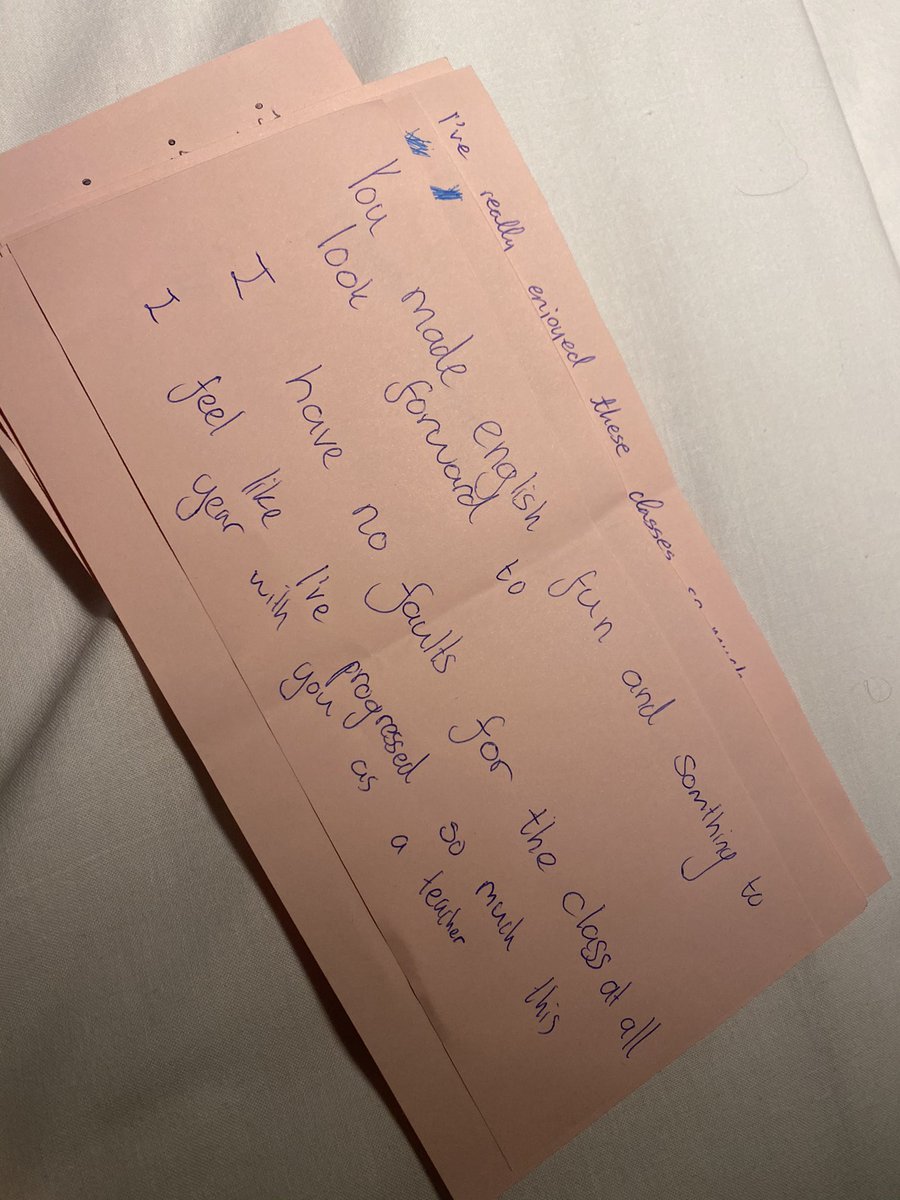 I've really enjoyed these classes so much
You made english fun and somthing to
look forward to
I have no faults for the class at all
I feel like I've progressed so much this
year with you as a teacher